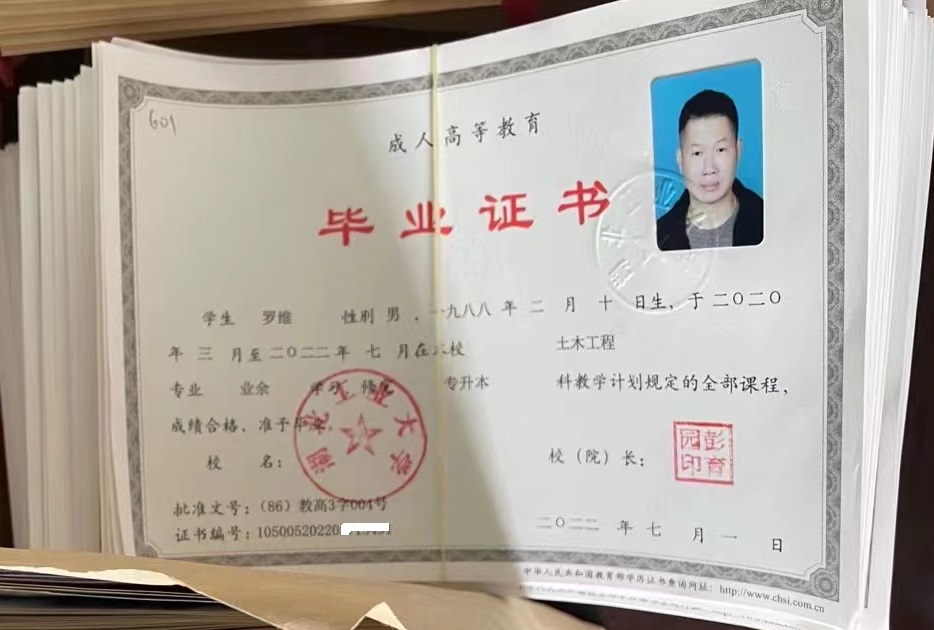 601
成人高等教育
毕业证书
学生 罗维 性别 男，一九八八年 二 月 十 日生，于二〇二〇
年 三 月至二〇二二年 七 月在本校 土木工程
专业 业余 学习，修完 专升本 科教学计划规定的全部课程，
成绩合格，准予毕业。
校 名： 校（院）长： 彭育园印
批准文号：（86）教高3字004号
证书编号：10500520220
二〇二二 年 七 月 一 日
中华人民共和国教育部学历证书查询网址：http://www.chsi.com.cn